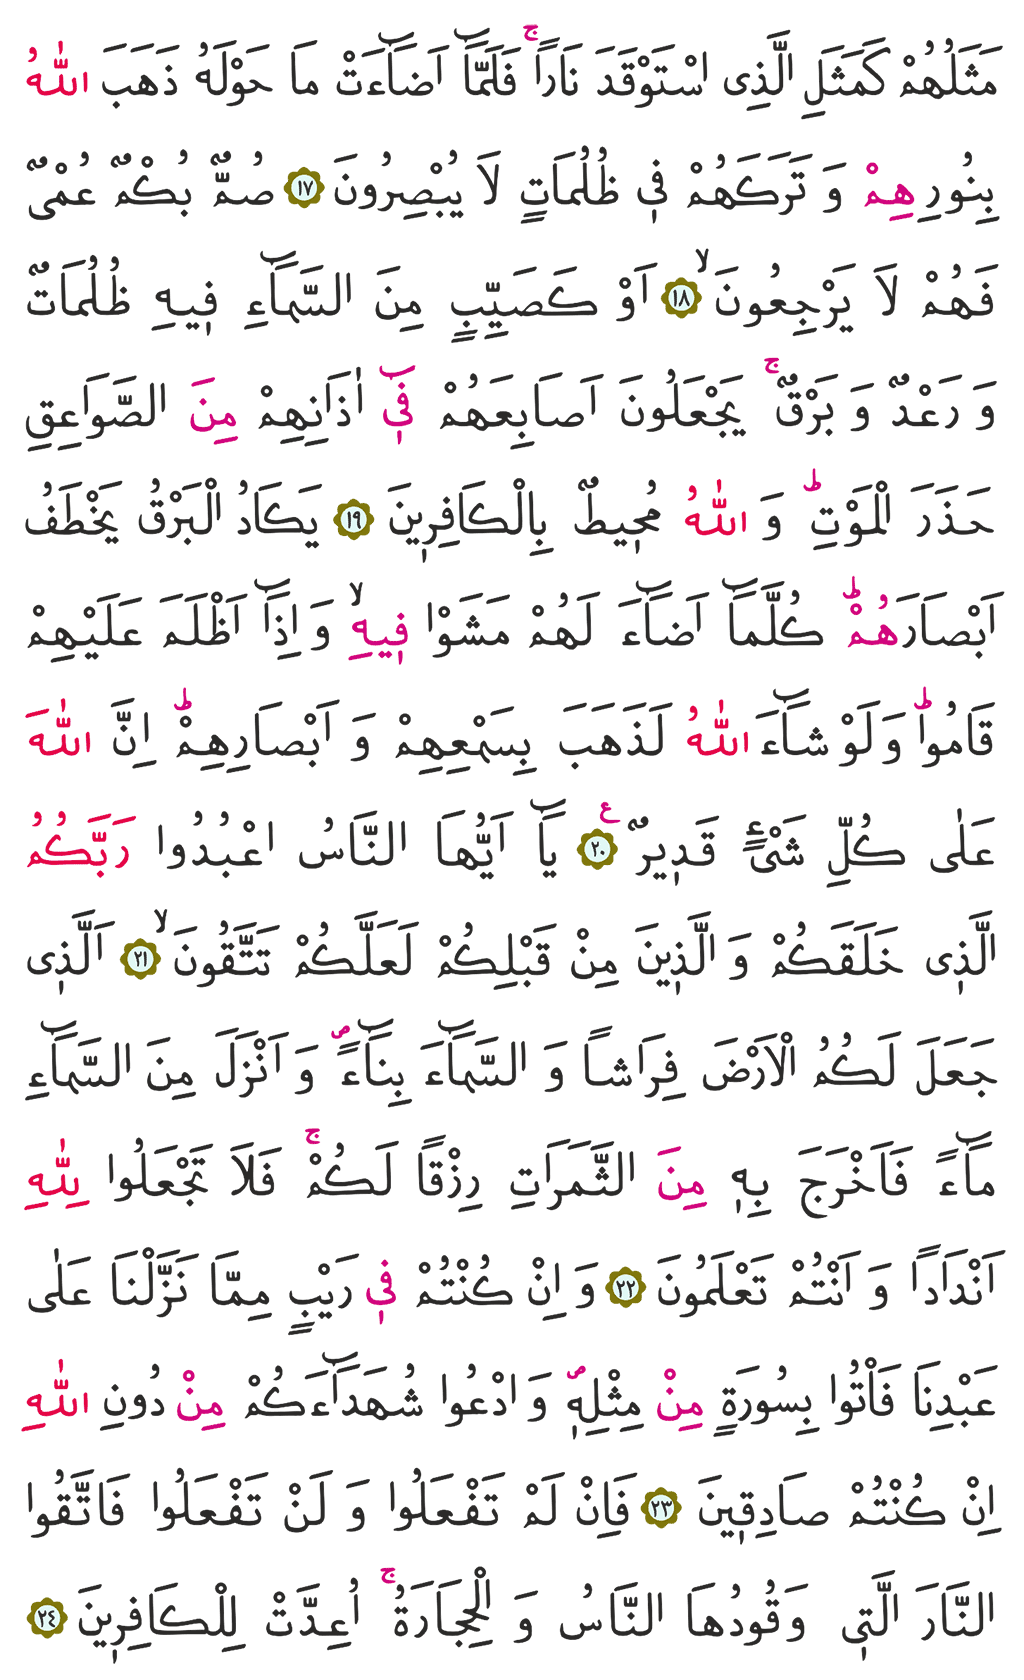 مَثَلُهُمْ كَمَثَلِ الَّذِى اسْتَوْقَدَ نَاراًۚ فَلَمَّٓا اَضَٓاءَتْ مَا حَوْلَهُ ذَهَبَ اللّٰهُ
بِنُورِهِمْ وَ تَرَكَهُمْ فٖى ظُلُمَاتٍ لَا يُبْصِرُونَ ﴿١٧﴾ صُمٌّ بُكْمٌ عُمْىٌ
فَهُمْ لَا يَرْجِعُونَۙ ﴿١٨﴾ اَوْ كَصَيِّبٍ مِنَ السَّمَٓاءِ فٖيهِ ظُلُمَاتٌ
وَ رَعْدٌ وَ بَرْقٌۚ يَجْعَلُونَ اَصَابِعَهُمْ فٖٓى اٰذَانِهِمْ مِنَ الصَّوَاعِقِ
حَذَرَ الْمَوْتِؕ وَ اللّٰهُ مُحٖيطٌ بِالْكَافِرٖينَ ﴿١٩﴾ يَكَادُ الْبَرْقُ يَخْطَفُ
اَبْصَارَهُمْؕ كُلَّمَٓا اَضَٓاءَ لَهُمْ مَشَوْا فٖيهِۙ وَ اِذَٓا اَظْلَمَ عَلَيْهِمْ
قَامُواؕ وَ لَوْ شَٓاءَ اللّٰهُ لَذَهَبَ بِسَمْعِهِمْ وَ اَبْصَارِهِمْؕ اِنَّ اللّٰهَ
عَلٰى كُلِّ شَىْءٍ قَدٖيرٌ ﴿٢٠﴾ ع يَٓا اَيُّهَا النَّاسُ اعْبُدُوا رَبَّكُمُ
الَّذٖى خَلَقَكُمْ وَ الَّذٖينَ مِنْ قَبْلِكُمْ لَعَلَّكُمْ تَتَّقُونَۙ ﴿٢١﴾ اَلَّذٖى
جَعَلَ لَكُمُ الْاَرْضَ فِرَاشاً وَ السَّمَٓاءَ بِنَٓاءًࣕ وَ اَنْزَلَ مِنَ السَّمَٓاءِ
مَٓاءً فَاَخْرَجَ بِهٖ مِنَ الثَّمَرَاتِ رِزْقاً لَكُمْۚ فَلَا تَجْعَلُوا لِلّٰهِ
اَنْدَاداً وَ اَنْتُمْ تَعْلَمُونَ ﴿٢٢﴾ وَ اِنْ كُنْتُمْ فٖى رَيْبٍ مِمَّا نَزَّلْنَا عَلٰى
عَبْدِنَا فَأْتُوا بِسُورَةٍ مِنْ مِثْلِهٖࣕ وَ ادْعُوا شُهَدَٓاءَكُمْ مِنْ دُونِ اللّٰهِ
اِنْ كُنْتُمْ صَادِقٖينَ ﴿٢٣﴾ فَاِنْ لَمْ تَفْعَلُوا وَ لَنْ تَفْعَلُوا فَاتَّقُوا
النَّارَ الَّتٖى وَقُودُهَا النَّاسُ وَ الْحِجَارَةُۚ اُعِدَّتْ لِلْكَافِرٖينَ ﴿٢٤﴾